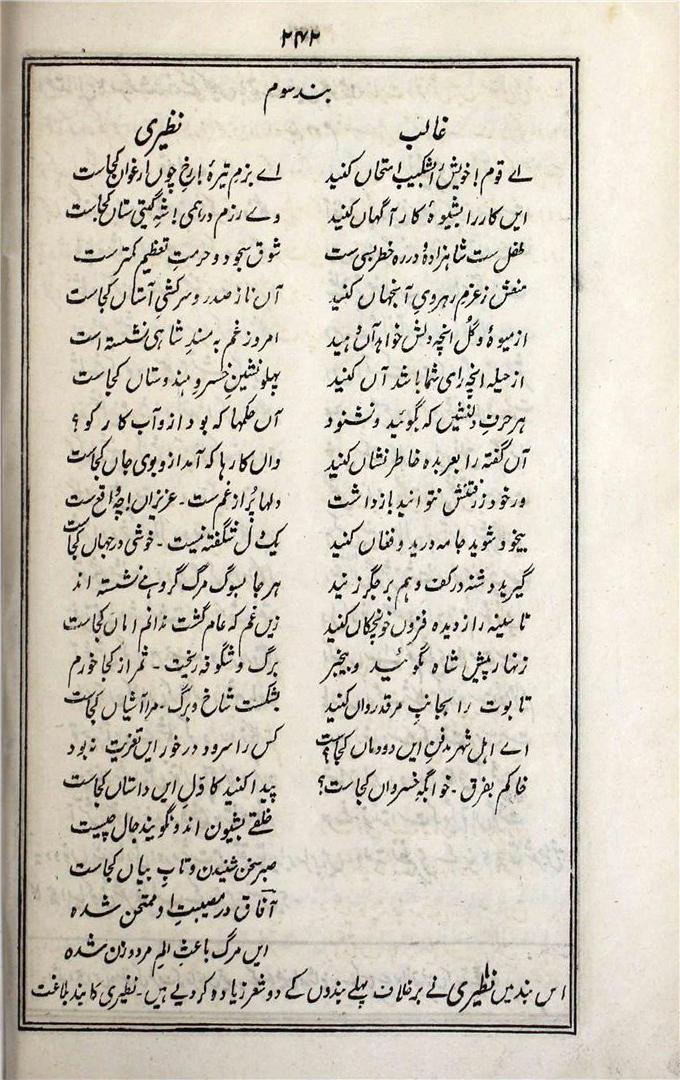 ۲۴۲
بند سوم
غالب
اے قوم! خویش را بشکیب امتحاں کنید
ایں کار را بشیوۂ کار آگہاں کنید
طفل ست شاہزادہ و در رہ خطر بسی ست
منعش ز عزم رہرویِ آنجہاں کنید
از میوہ و گل انچہ دلش خواہد آں دہید
از حیلہ انچہ رای شما باشد آں کنید
ہر حرفِ دلنشیں کہ بگوئید و نشنود
آں گفتہ را بعربدہ خاطر نشاں کنید
ور خود ز رفتنش نتوانید باز داشت
بیخود شوید جامہ درید و فغاں کنید
گیرید دشنہ در کف و ہم بر جگر زنید
تا سینہ را ز دیدہ فزوں خونچکاں کنید
زنہار پیش شاہ نگوئید و بیخبر
تابوت را بجانبِ مرقد رواں کنید
اے اہل شہر مدفنِ ایں دودماں کجاست؟
خاکم بفرق۔ خوابگہِ خسرواں کجاست؟
نظیری
اے بزم تیرۂ! رخِ چوں ارغواں کجاست
وے رزم درہمی! شہِ گیتی ستاں کجاست
شوق سجود و حرمتِ تعظیم کمتر ست
آں ناز صدر و سرکشیِ آستاں کجاست
امروز غم بہ مسندِ شاہی نشستہ است
پہلو نشینِ خسروِ ہندوستاں کجاست
آں حکمہا کہ بود ازو آب کار کو؟
واں کارہا کہ آمد ازو بوی جاں کجاست
دلہا پُر از غم ست۔ عزیزاں! چہ واقع ست
یک دل شگفتہ نیست۔ خوشی در جہاں کجاست
ہر جا بسوگ مرگ گروہے نشستہ اند
زیں غم کہ عام گشت ندانم اماں کجاست
برگ و شگوفہ ریخت۔ ثمر از کجا خورم
بشکست شاخ و برگ۔ مرا آشیاں کجاست
کس را سرود در خور ایں تعزیت نبود
پیدا کنید کاوّلِ ایں داستاں کجاست
خلقے بشیون اند و نگویند حال چیست
صبرِ سخن شنیدن و تابِ بیاں کجاست
آفاق در مصیبتِ او ممتحن شدہ
ایں مرگ باعثِ المِ مرد و زن شدہ
اس بند میں نظیری نے برخلاف پہلے بندوں کے دو شعر زیادہ کر دیے ہیں۔ نظیری کا بند بلاغت